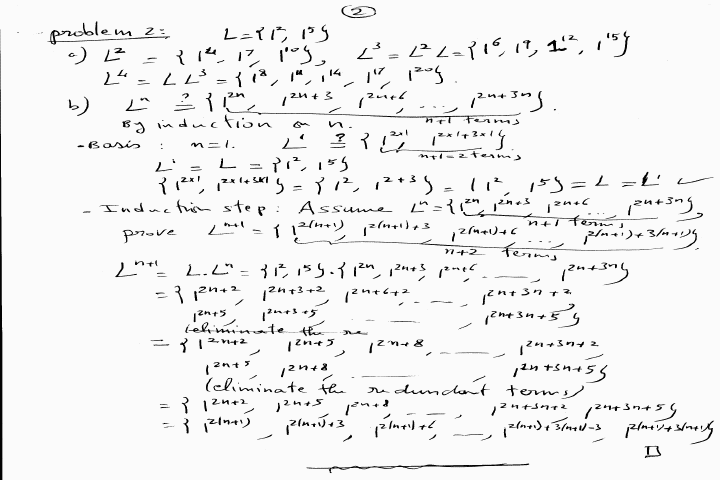 ②
problem 2: L = {1², 1⁵}
a) L² = {1⁴, 1⁷, 1¹⁰}, L³ = L² L = {1⁶, 1⁹, 1¹², 1¹⁵}
L⁴ = L L³ = {1⁸, 1¹¹, 1¹⁴, 1¹⁷, 1²⁰}.
b) Lⁿ ≟ {1^{2n}, 1^{2n+3}, 1^{2n+6}, ..., 1^{2n+3n}}.
n+1 terms
By induction on n.
- Basis: n=1. L¹ ≟ {1^{2×1}, 1^{2×1+3×1}}
n+1=2 terms
L¹ = L = {1², 1⁵}
{1^{2×1}, 1^{2×1+3×1}} = {1², 1^{2+3}} = {1², 1⁵} = L = L¹ ✓
- Induction step: Assume Lⁿ = {1^{2n}, 1^{2n+3}, 1^{2n+6}, ..., 1^{2n+3n}},
n+1 terms
prove L^{n+1} = {1^{2(n+1)}, 1^{2(n+1)+3}, 1^{2(n+1)+6}, ..., 1^{2(n+1)+3(n+1)}}
n+2 terms
L^{n+1} = L.Lⁿ = {1², 1⁵}.{1^{2n}, 1^{2n+3}, 1^{2n+6}, ——, 1^{2n+3n}}
= {1^{2n+2}, 1^{2n+3+2}, 1^{2n+6+2}, ——, 1^{2n+3n+2},
1^{2n+5}, 1^{2n+3+5}, ——, 1^{2n+3n+5}}
(eliminate the re
= {1^{2n+2}, 1^{2n+5}, 1^{2n+8}, ——, 1^{2n+3n+2}
1^{2n+5}, 1^{2n+8}, ——, 1^{2n+3n+5}}
(eliminate the redundant terms)
= {1^{2n+2}, 1^{2n+5}, 1^{2n+8}, ——, 1^{2n+3n+2}, 1^{2n+3n+5}}
= {1^{2(n+1)}, 1^{2(n+1)+3}, 1^{2(n+1)+6}, ——, 1^{2(n+1)+3(n+1)-3}, 1^{2(n+1)+3(n+1)}}
□